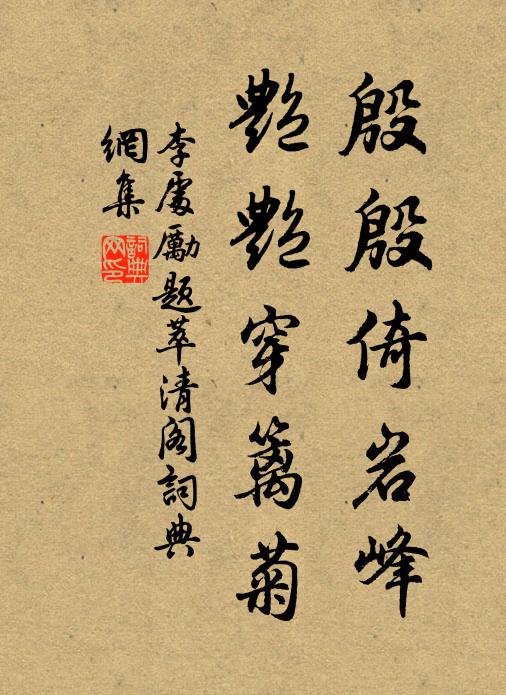 殷殷倚岩峰
艷艷穿籬菊
李處勵題萃清閣詞典
網集
詞典网印